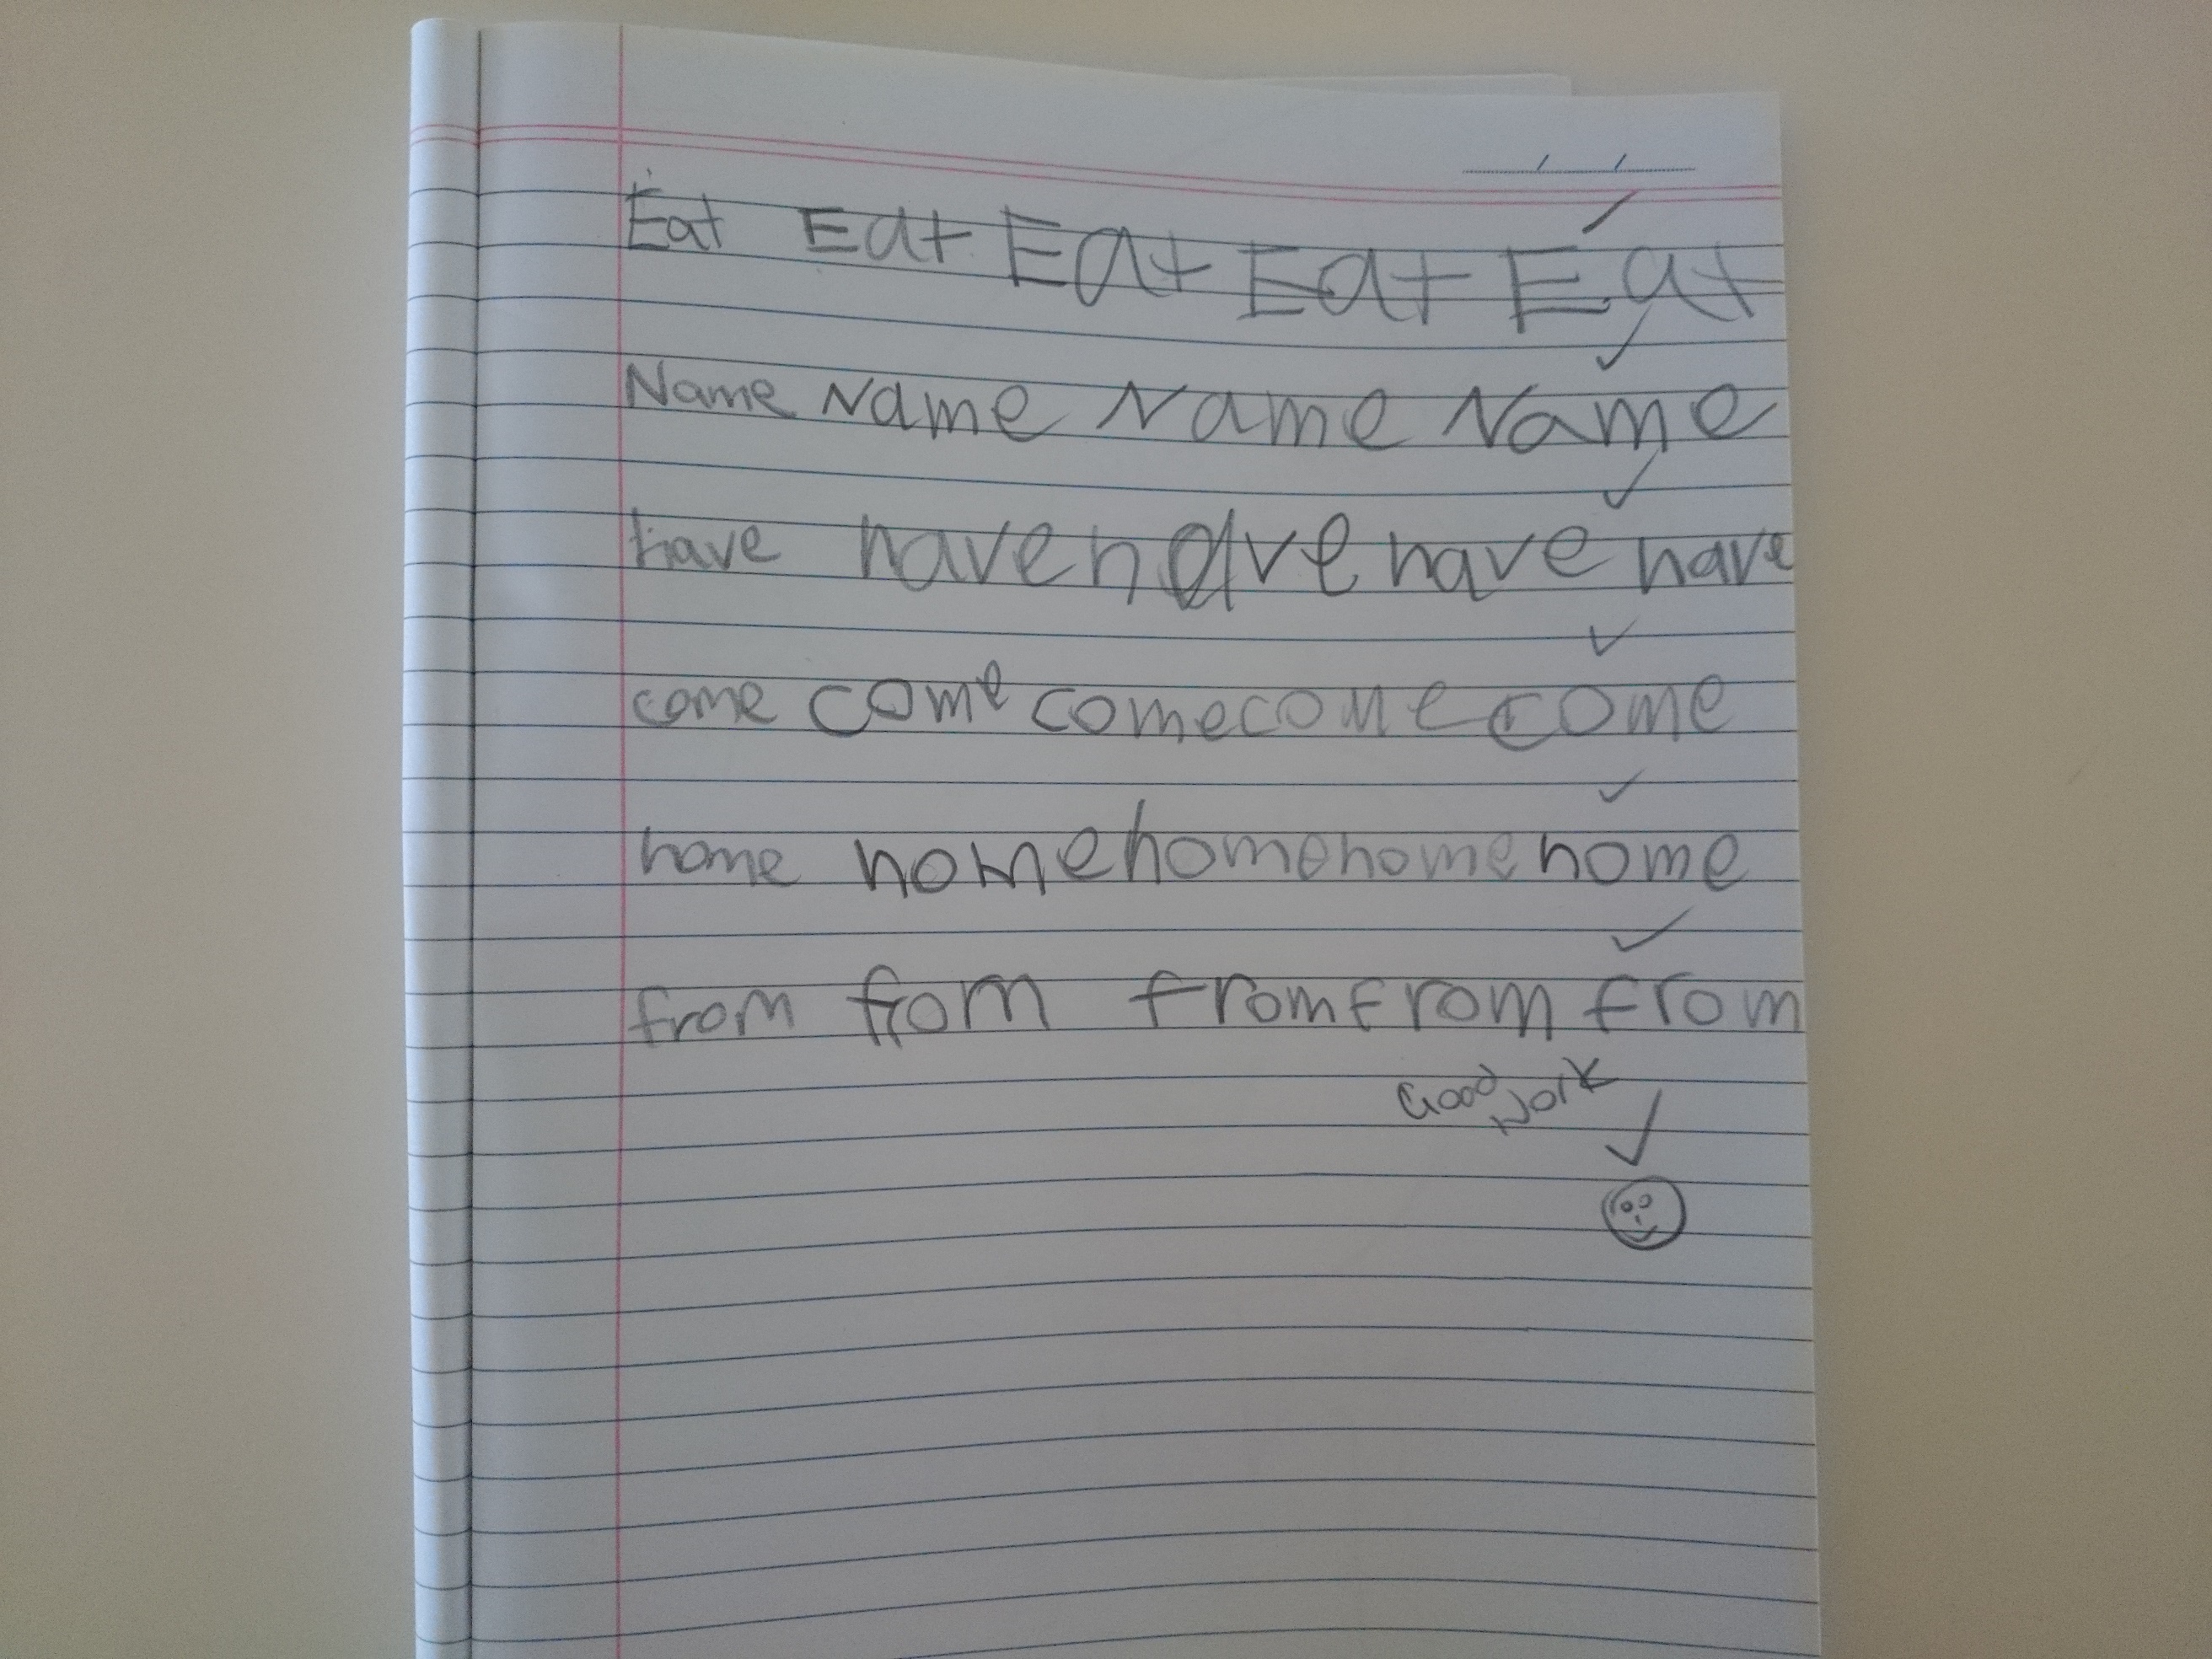 Eat Eat Eat Eat Eat
Name Name Name Name
have have have have have
come come come come come
home home home home home
from from from from from
Good work